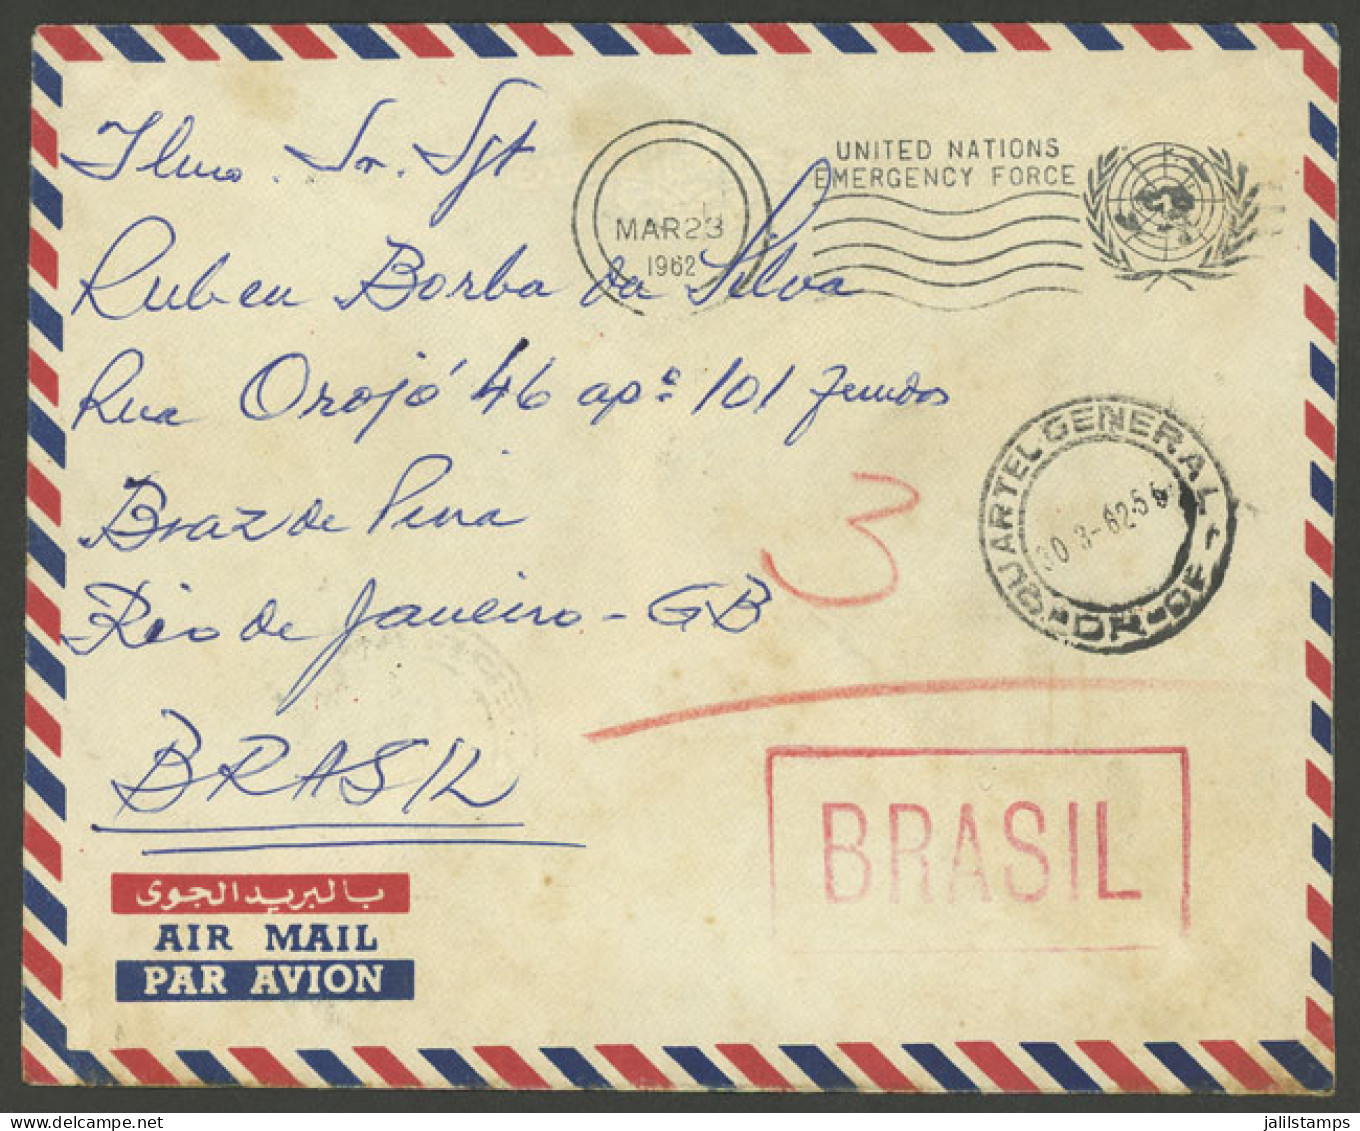 Ilmo. Sr. Sgt
Ruben Borba da Silva
Rua Orojó 46 apº 101 fundos
Braz de Pina
Rio de Janeiro - GB
BRASIL
MAR 23
1962
UNITED NATIONS
EMERGENCY FORCE
QUARTEL GENERAL
30 3-62
DR-DF
3
BRASIL
بالبريد الجوى
AIR MAIL
PAR AVION
jalilstamps